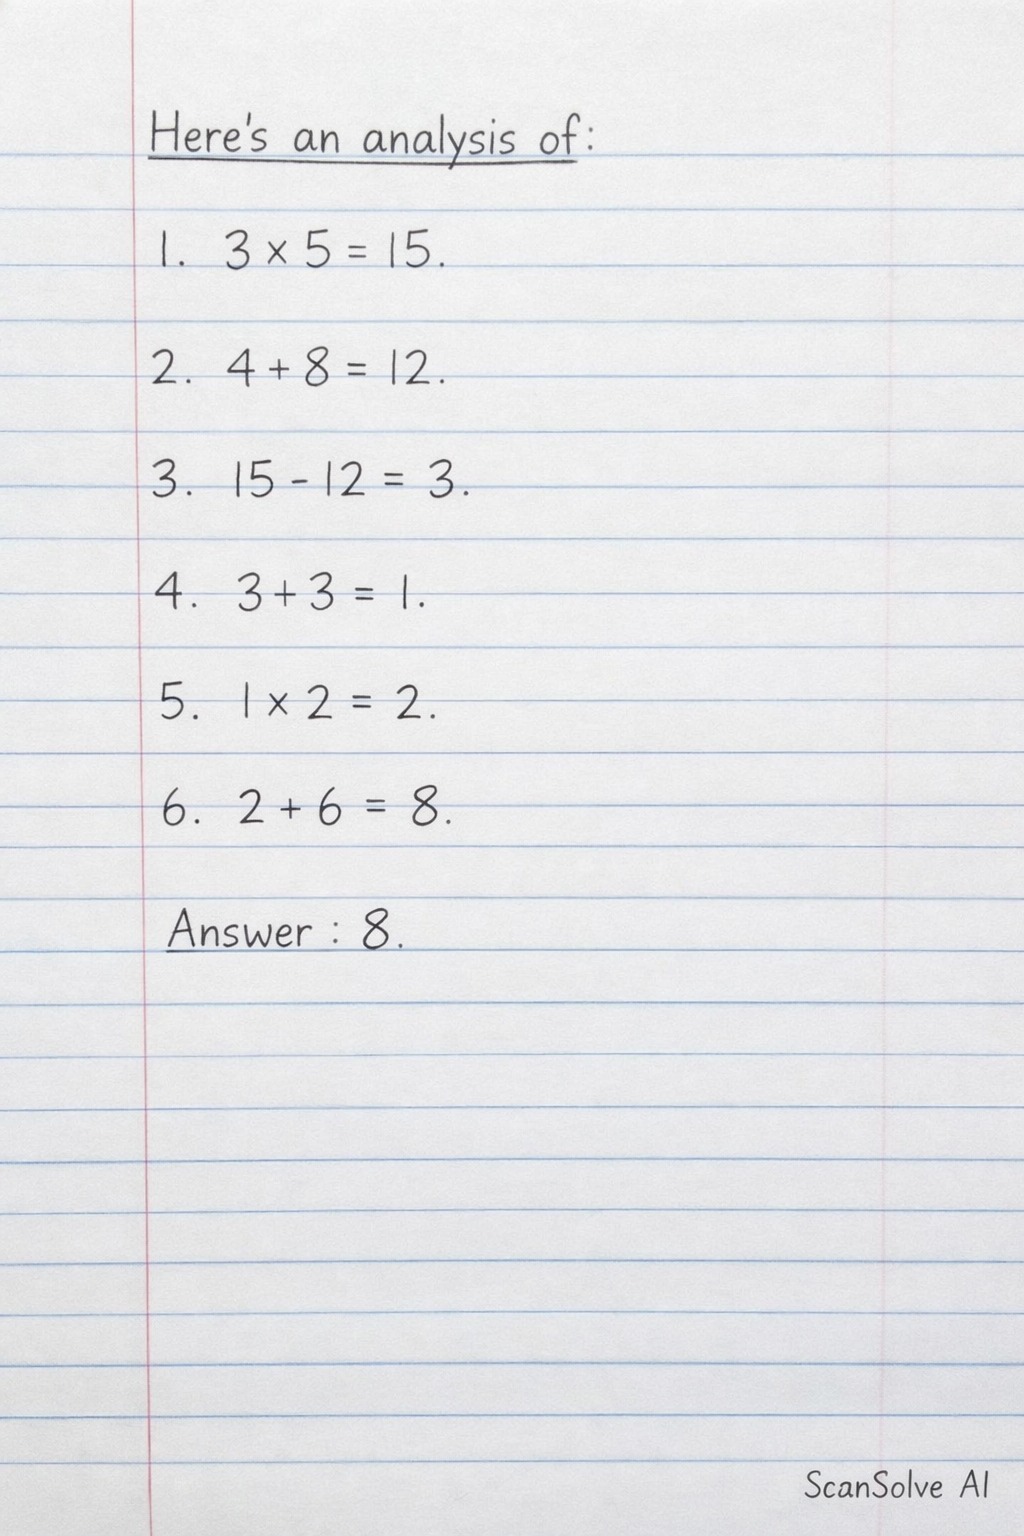 Here's an analysis of:
1. 3 × 5 = 15.
2. 4 + 8 = 12.
3. 15 - 12 = 3.
4. 3 + 3 = 1.
5. 1 × 2 = 2.
6. 2 + 6 = 8.
Answer : 8.
ScanSolve AI